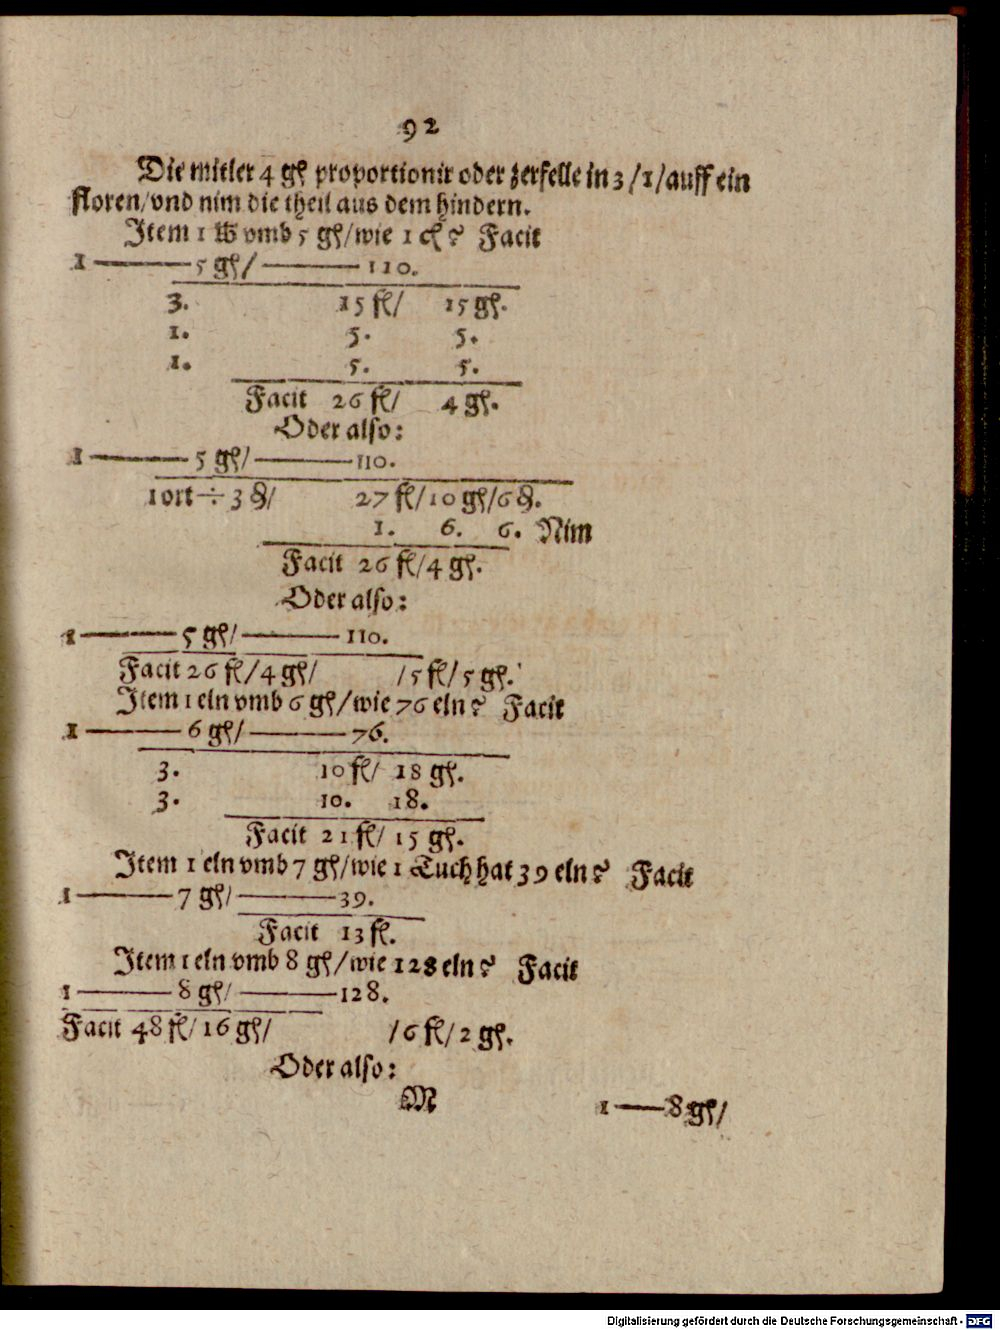 92
Die mitler 4 gʒ proportionir oder zerfelle in 3 /1/auff ein
floren/vnd nim die theil aus dem hindern.
Item 1 ℔ vmb 5 gʒ/wie 1 cʒ? Facit
1 ——— 5 gʒ/ ——— 110.
3. 15 fl/ 15 gʒ.
1. 5. 5.
1. 5. 5.
Facit 26 fl/ 4 gʒ.
Oder also:
1 ——— 5 gʒ/ ——— 110.
1 ort ÷ 3 §/ 27 fl/10 gʒ/6 §.
1. 6. 6. Nim
Facit 26 fl/4 gʒ.
Oder also:
1 ——— 5 gʒ/ ——— 110.
Facit 26 fl/4 gʒ/ /5 fl/5 gʒ.
Item 1 eln vmb 6 gʒ/wie 76 eln? Facit
1 ——— 6 gʒ/ ——— 76.
3. 10 fl/ 18 gʒ.
3. 10. 18.
Facit 21 fl/ 15 gʒ.
Item 1 eln vmb 7 gʒ/wie 1 Tuch hat 39 eln? Facit
1 ——— 7 gʒ/ ——— 39.
Facit 13 fl.
Item 1 eln vmb 8 gʒ/wie 128 eln? Facit
1 ——— 8 gʒ/ ——— 128.
Facit 48 fl/16 gʒ/ /6 fl/2 gʒ.
Oder also:
M 1 —— 8 gʒ/
Digitalisierung gefördert durch die Deutsche Forschungsgemeinschaft - DFG